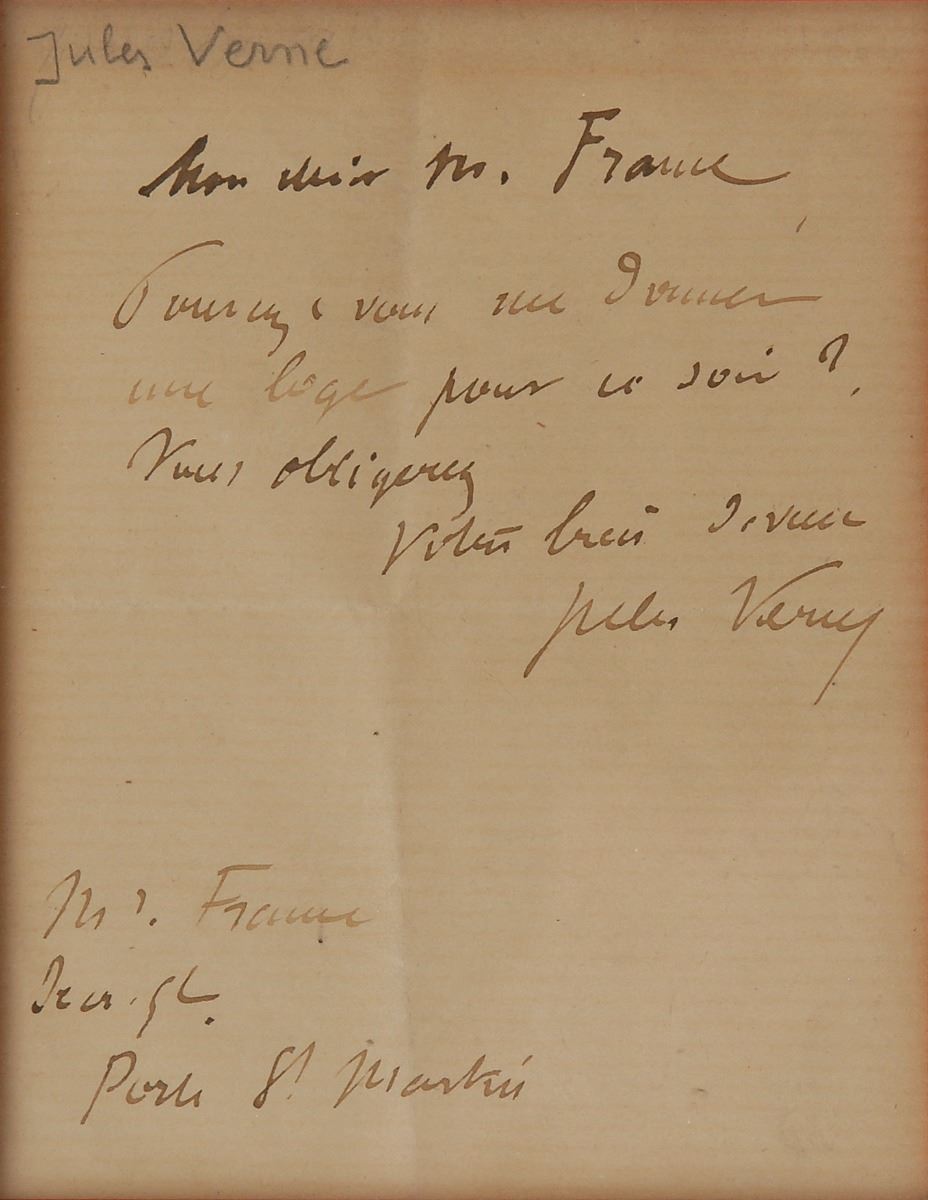 Jules Verne
Mon cher M. France
Pouvez vous me donner
une loge pour ce soir ?
Vous obligerez
Votre bien dévoué
Jules Verne
Mr. France
Secr. gl.
Porte St Martin